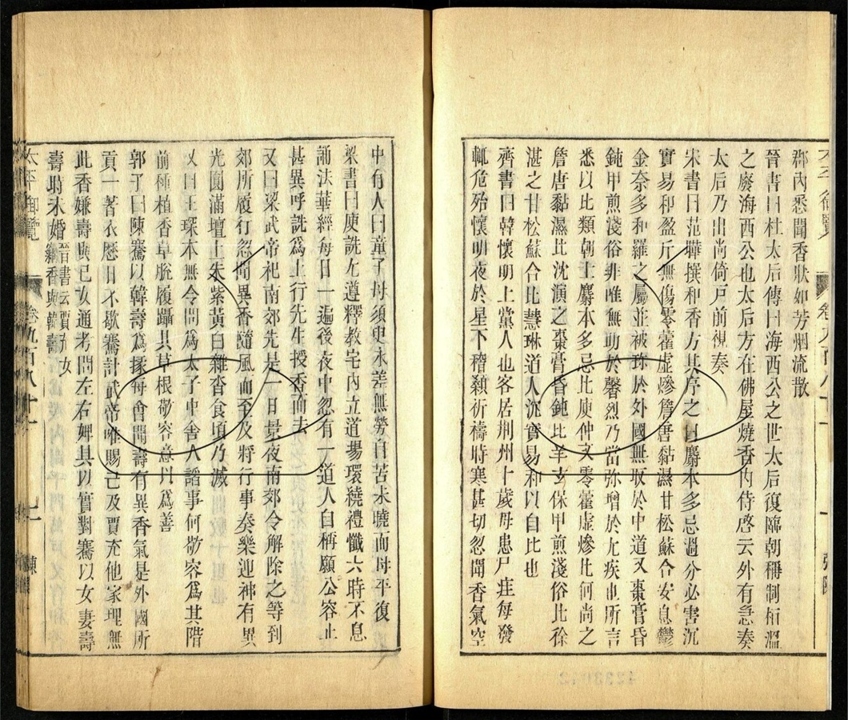 郡內悉聞香狀如芳烟流散
晉書曰杜太后傳曰海西公之世太后復臨朝稱制桓溫
之廢海西公也太后方在佛屋燒香內侍啓云外有急奏
太后乃出尚倚戸前視奏
宋書曰范曄撰和香方其序之曰麝本多忌過分必害沉
實易和盈斤無傷零藿虛燥詹唐黏濕甘松蘇合安息鬱
金奈多和羅之屬並被珍於外國無取於中道又棗膏昏
鈍甲煎淺俗非唯無助於馨烈乃當弥增於尤疾也所言
悉以比類朝士麝本多忌比庾仲文零藿虛燥比何尚之
詹唐黏濕比沈演之棗膏昏鈍比羊玄保甲煎淺俗比徐
湛之甘松蘇合比慧琳道人沉實易和以自比也
齊書曰韓懷明上黨人也客居荆州十歲母患尸疰每發
輒危殆懷明夜於星下稽顙祈禱時寒甚切忽聞香氣空
太平御覽 卷九百八十一
中有人曰童子母須史永差無勞自苦未曉而母平復
梁書曰庾詵尤遵釋教宅內立道場環繞禮懺六時不息
誦法華經每日一遍後夜中忽有一道人自稱願公容止
甚異呼詵爲上行先生授香而去
又曰梁武帝祀南郊先是一日景夜南郊令解除之等到
郊所履行忽聞異香隨風而至及將行事奏樂迎神有異
光圓滿壇上朱紫黃白雜沓食頃乃滅
又曰王琛本無令問爲太子中舍人謟事何敬容爲其階
前種植香草脫履躡其草根敬容意以爲善
郭子曰陳騫以韓壽爲掾每會聞壽有異香氣是外國所
貢一著衣歷日不歇騫計武帝唯賜己及賈充他家理無
此香嫌壽與己女通考問左右婢具以實對騫以女妻壽
壽時未婚晉書云賈充女
竊香與韓壽
太平御覽 卷九百八十一